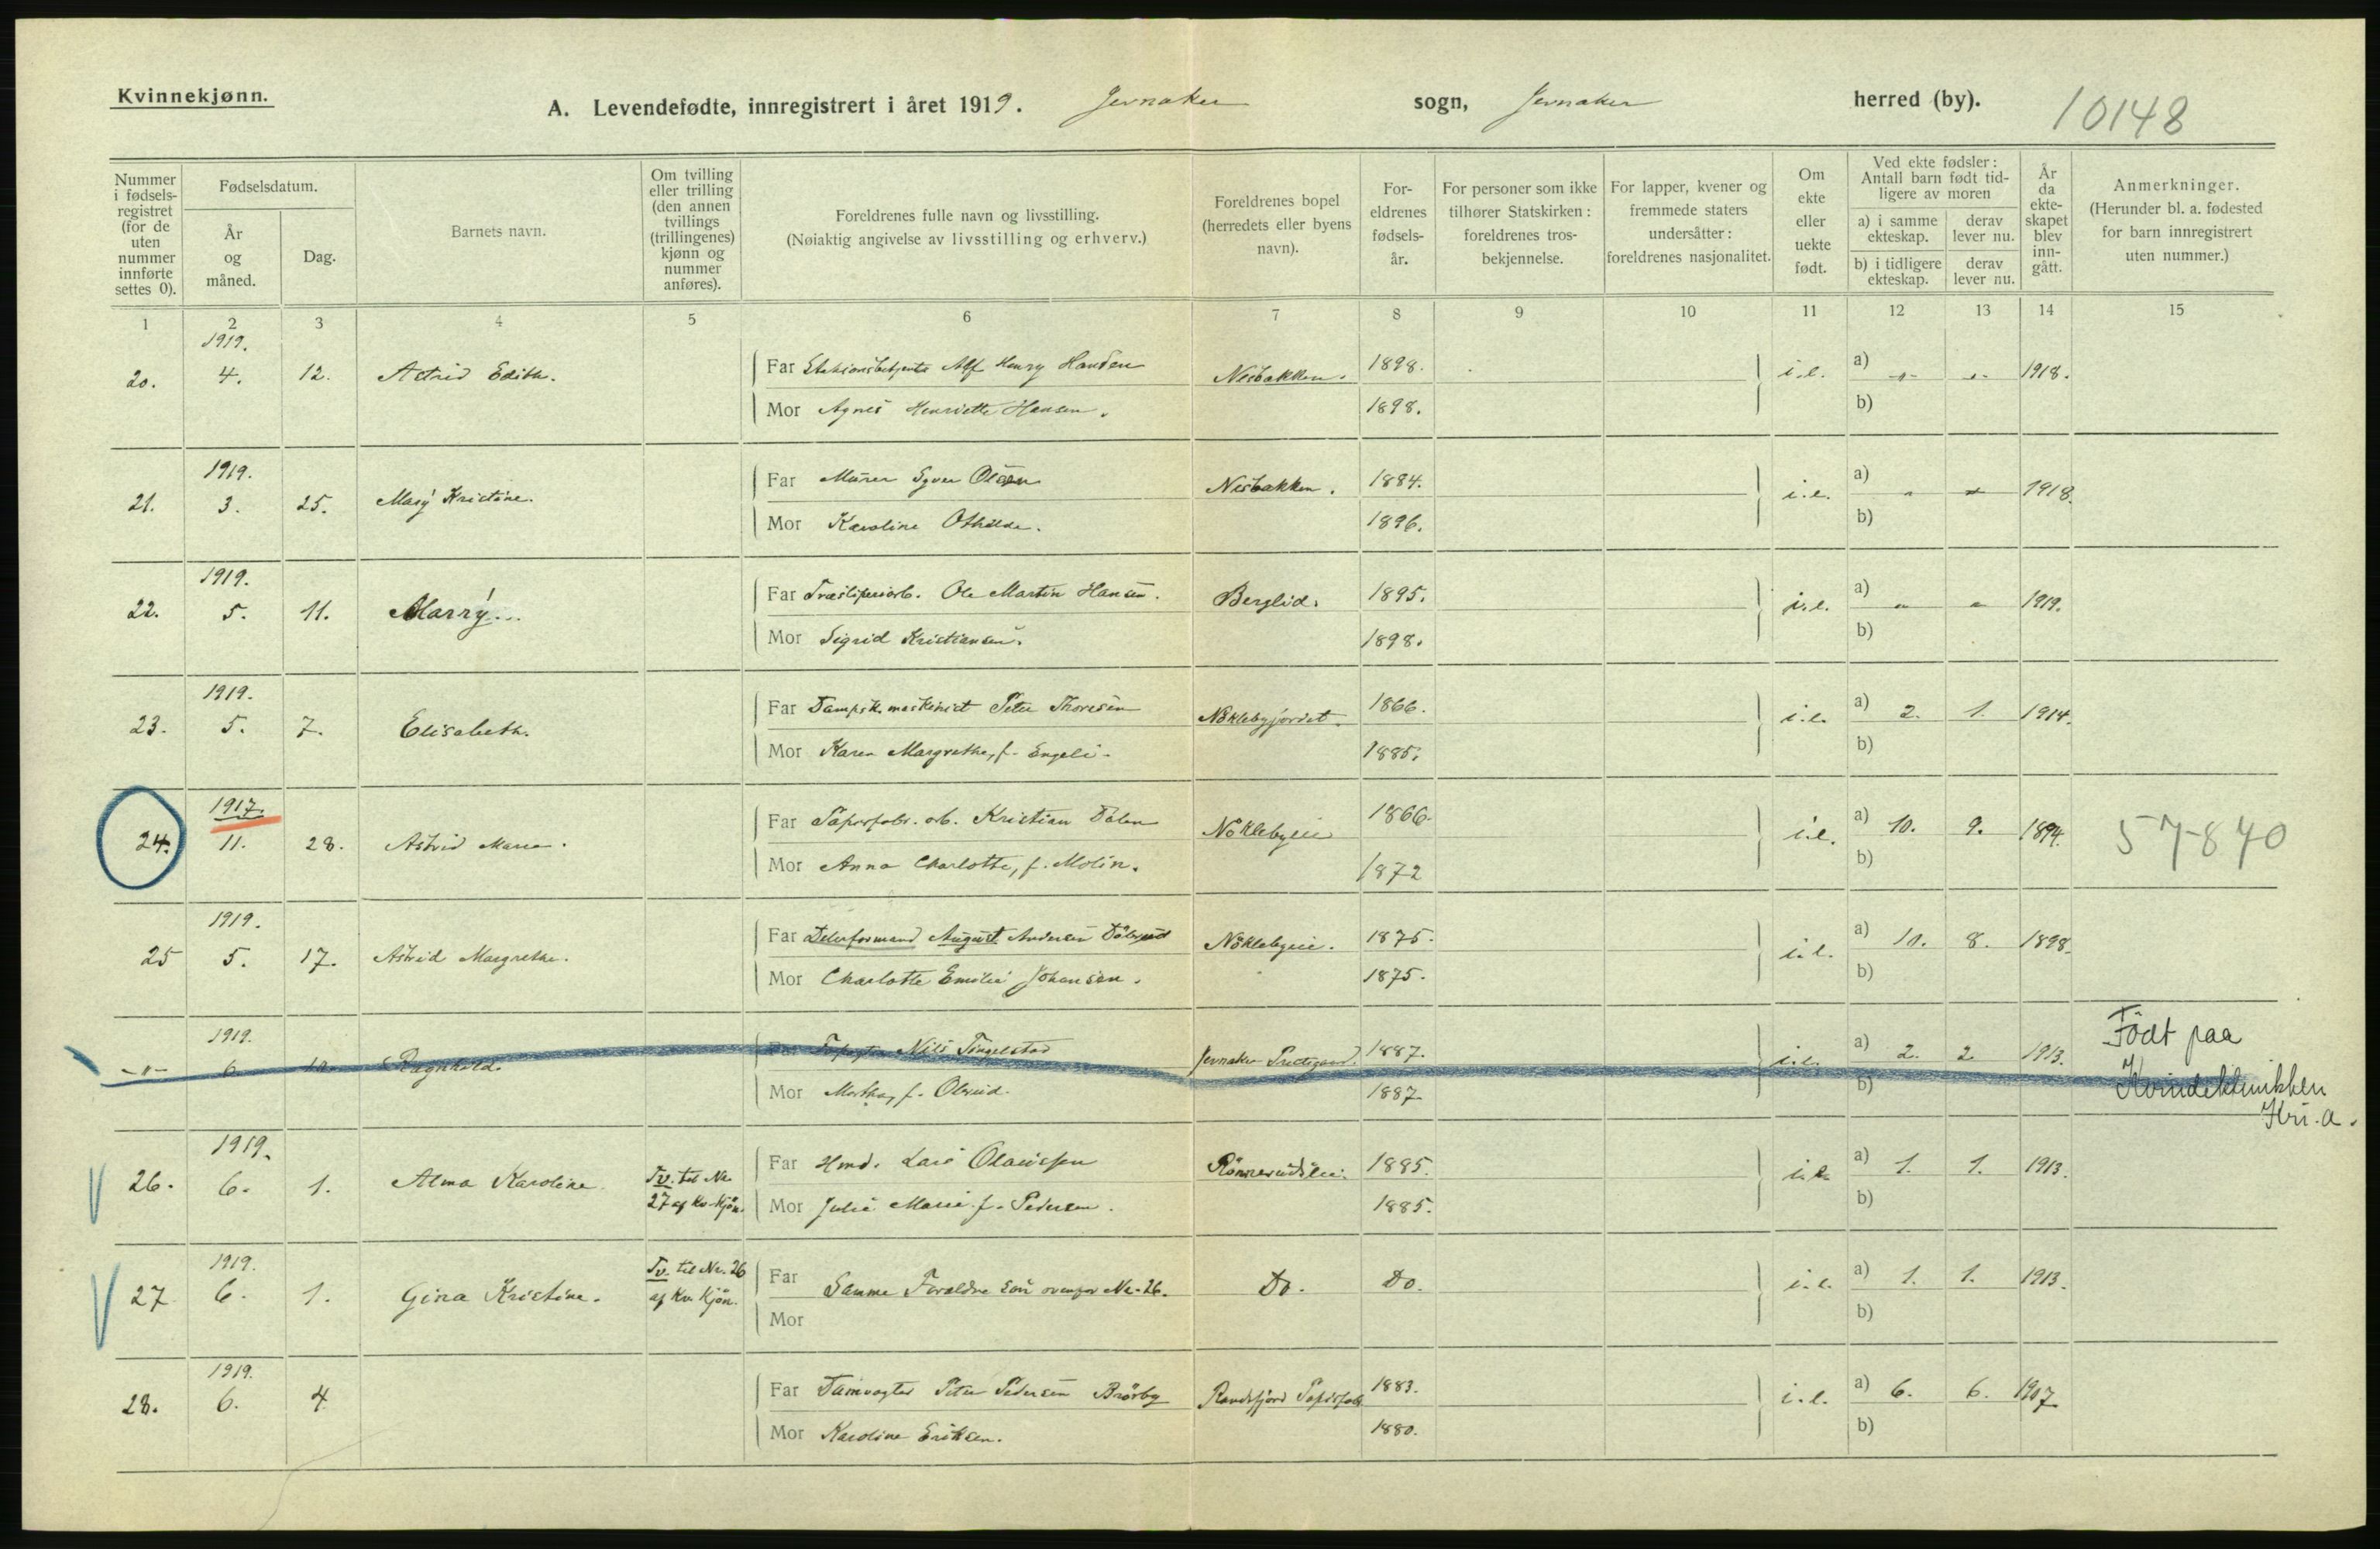 Kvinnekjønn.
A. Levendefødte, innregistrert i året 1919. Jevnaker sogn, Jevnaker herred (by). 10148
Nummer i fødsels-registret (for de uten nummer innførte settes 0).
Fødselsdatum.
År og måned.
Dag.
Barnets navn.
Om tvilling eller trilling (den annen tvillings (trillingenes) kjønn og nummer anføres).
Foreldrenes fulle navn og livsstilling.
(Nøiaktig angivelse av livsstilling og erhverv.)
Foreldrenes bopel (herredets eller byens navn).
For-eldrenes fødsels-år.
For personer som ikke tilhører Statskirken: foreldrenes tros-bekjennelse.
For lapper, kvener og fremmede staters undersåtter: foreldrenes nasjonalitet.
Om ekte eller uekte født.
Ved ekte fødsler: Antall barn født tid-ligere av moren
a) i samme ekteskap.
derav lever nu.
b) i tidligere ekteskap.
derav lever nu.
År da ekte-skapet blev inn-gått.
Anmerkninger.
(Herunder bl. a. fødested for barn innregistrert uten nummer.)
1 2 3 4 5 6 7 8 9 10 11 12 13 14 15
1919.
20. 4. 12. Astrid Edith. Far Stationsbetjent Alf Henry Hansen Nesbakken. 1898. i.e. a) -"- -"- 1918.
Mor Agnes Henriette Hansen. 1898. b)
1919.
21. 3. 25. Mary Kristine. Far Murer Syver Olsen Nesbakken. 1884. i.e. a) " " 1918.
Mor Karoline Othilde. 1896. b)
1919.
22. 5. 11. Marry... Far Træsliperiarb. Ole Martin Hansen. Berglid. 1895. i.e. a) " " 1919.
Mor Sigrid Kristiansen. 1898. b)
1919.
23. 5. 7. Elisabeth. Far Dampsk.maskinist Peter Thoresen Nöklebyjordet. 1866. i.e. a) 2. 1. 1914.
Mor Karen Margrethe, f. Engeli. 1885. b)
1917.
24. 11. 28. Astrid Marie. Far Papirfabr. arb. Kristian Dalen Nöklebyeie 1866. i.e. a) 10. 9. 1894. 57840
Mor Anna Charlotte, f. Molin. 1872 b)
1919.
25 5. 17. Astrid Margrethe. Far August Andersen Nöklebyeie. 1875. i.e. a) 10. 8. 1898.
Mor Charlotte Emilie Johansen. 1875. b)
1919.
-"- 6. 10. Ragnhild. Far Nils Tingelstad Jevnaker Prestegaard. 1887. i.e. a) 2. 2. 1913. Födt paa
Mor Martha, f. Olsrud. 1887. b) Kvindeklinikken
Kri.a.
1919.
26. 6. 1. Alma Karoline. Tv. til Nr. 27 af Kv. Kjön. Far Hmd. Lars Olavesen 1885. i.e. a) 1. 1. 1913.
Mor Julie Marie f. Pedersen. 1885. b)
1919.
27 6. 1. Gina Kristine. Tv. til Nr. 26 af Kv. Kjön. Far Samme Forældre som ovenfor Nr. 26. Do. Do. i.e. a) 1. 1. 1913.
Mor b)
1919.
28. 6. 4 Far Damvogter Peter Pedersen Brörby Randsfjord Papirfabr. 1883. i.e. a) 6. 6. 1907
Mor Karoline Eriksen. 1880. b)